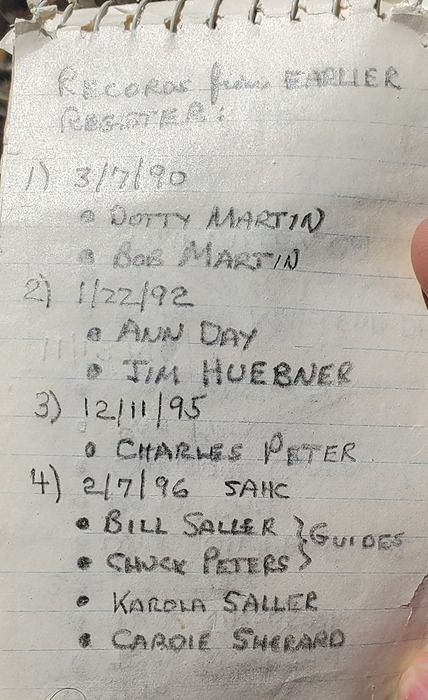 RECORDS from EARLIER
REGISTER:
1) 3/7/90
• DOTTY MARTIN
• BOB MARTIN
2) 1/22/92
• ANN DAY
• JIM HUEBNER
3) 12/11/95
• CHARLES PETER
4) 2/7/96 SAHC
• BILL SALLER } GUIDES
• CHUCK PETERS
• KAROLA SALLER
• CAROLE SHERARD